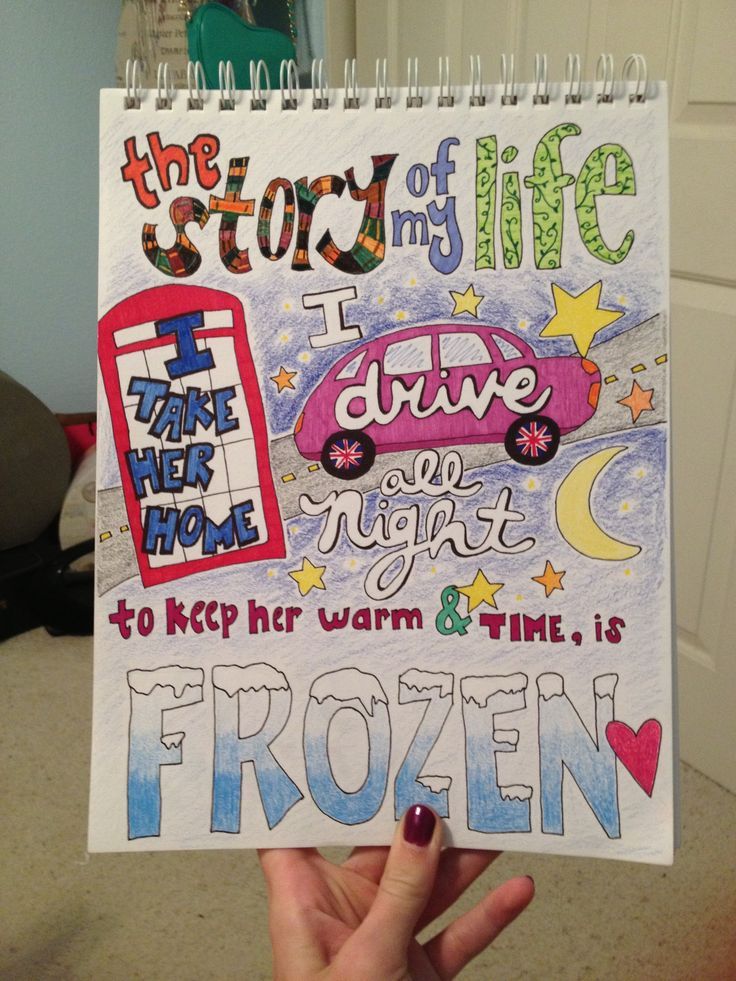 the story of my life
I TAKE HER HOME
I drive all night
to keep her warm & TIME, is
FROZEN